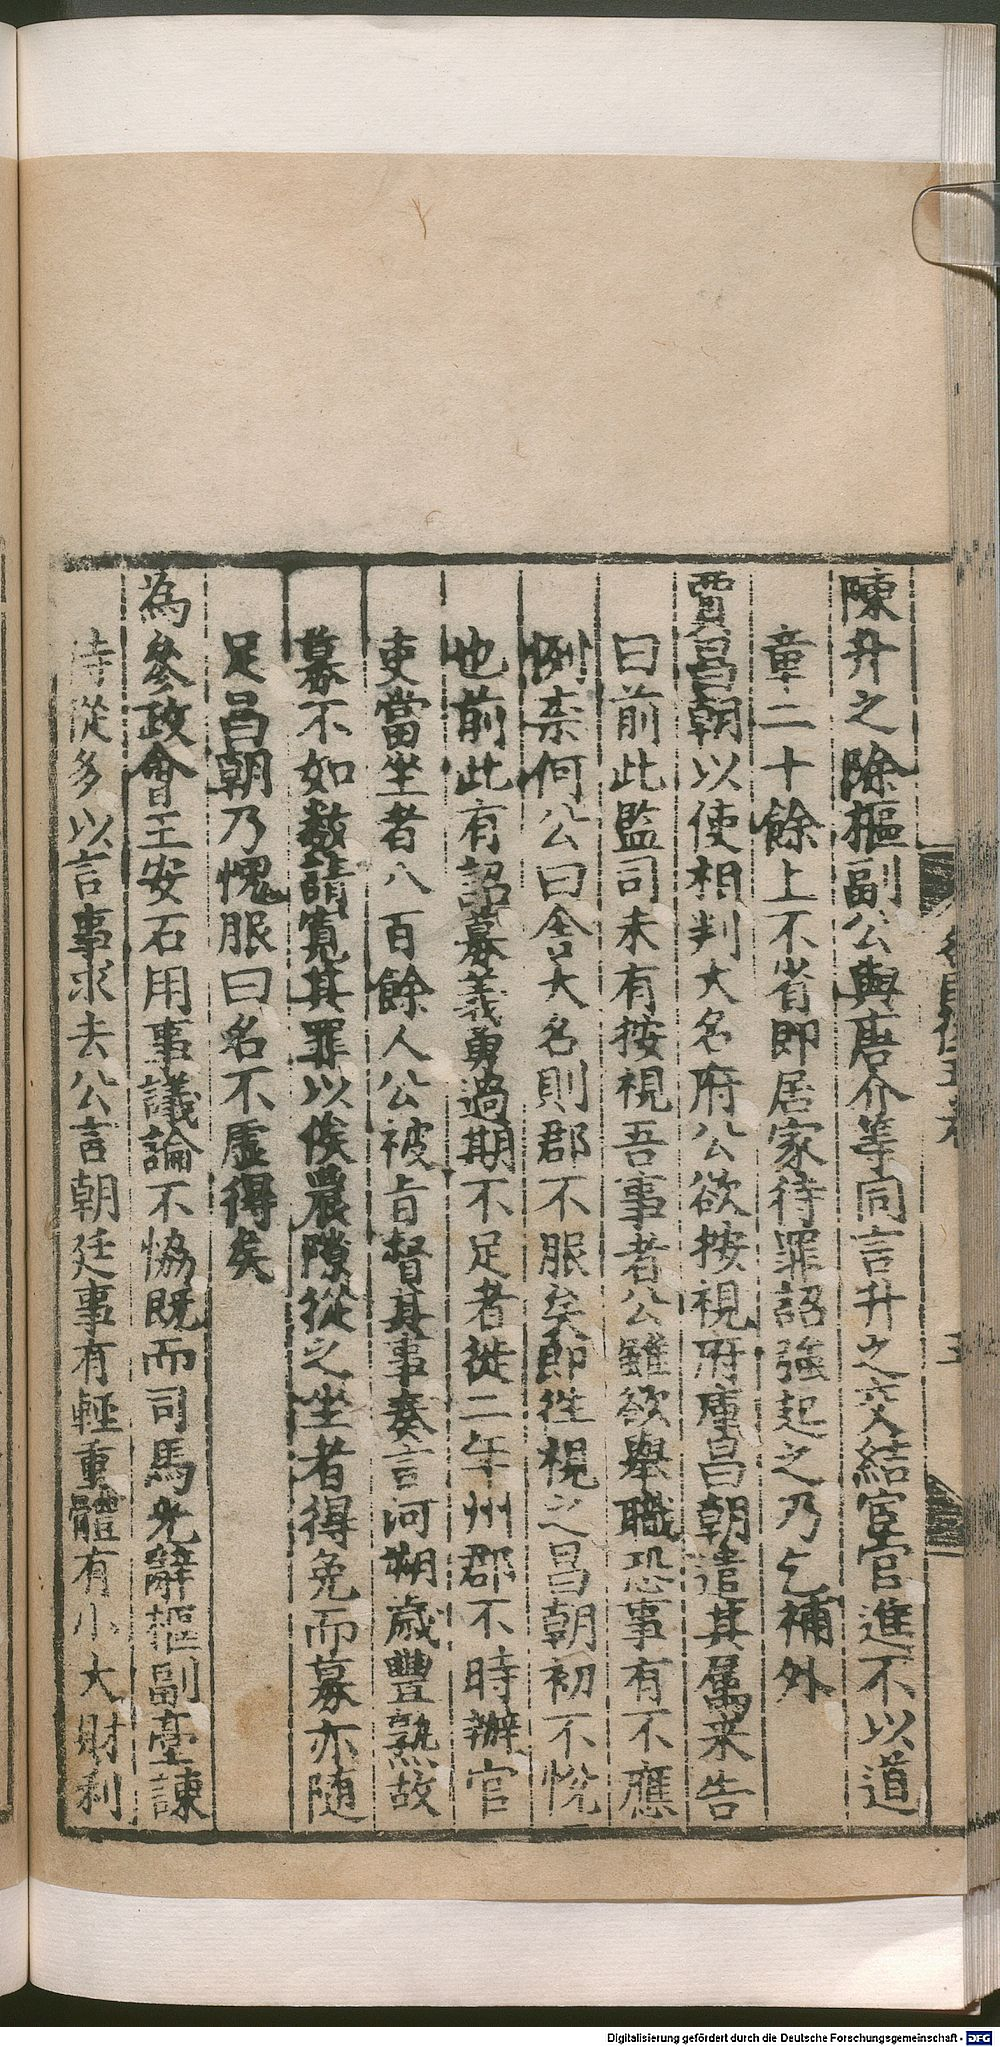 陳升之除樞副公與唐介等同言升之交結宦官進不以道
章二十餘上不省即居家待罪詔強起之乃乞補外
賈昌朝以使相判大名府公欲按視府庫昌朝遣其屬來告
曰前此監司未有按視吾事者公雖欲舉職恐事有不應
例柰何公曰舍大名則郡不服矣即徃視之昌朝初不悅
也前此有詔募義勇過期不足者徙二年州郡不時辦官
吏當坐者八百餘人公被旨督其事奏言河朔歲豐熟故
募不如數請寬其罪以俟農隙從之坐者得免而募亦隨
足昌朝乃愧服曰名不虛得矣
為參政會王安石用事議論不恊既而司馬光辭樞副臺諫
侍從多以言事求去公言朝廷事有輕重體有小大財利
Digitalisierung gefördert durch die Deutsche Forschungsgemeinschaft - DFG